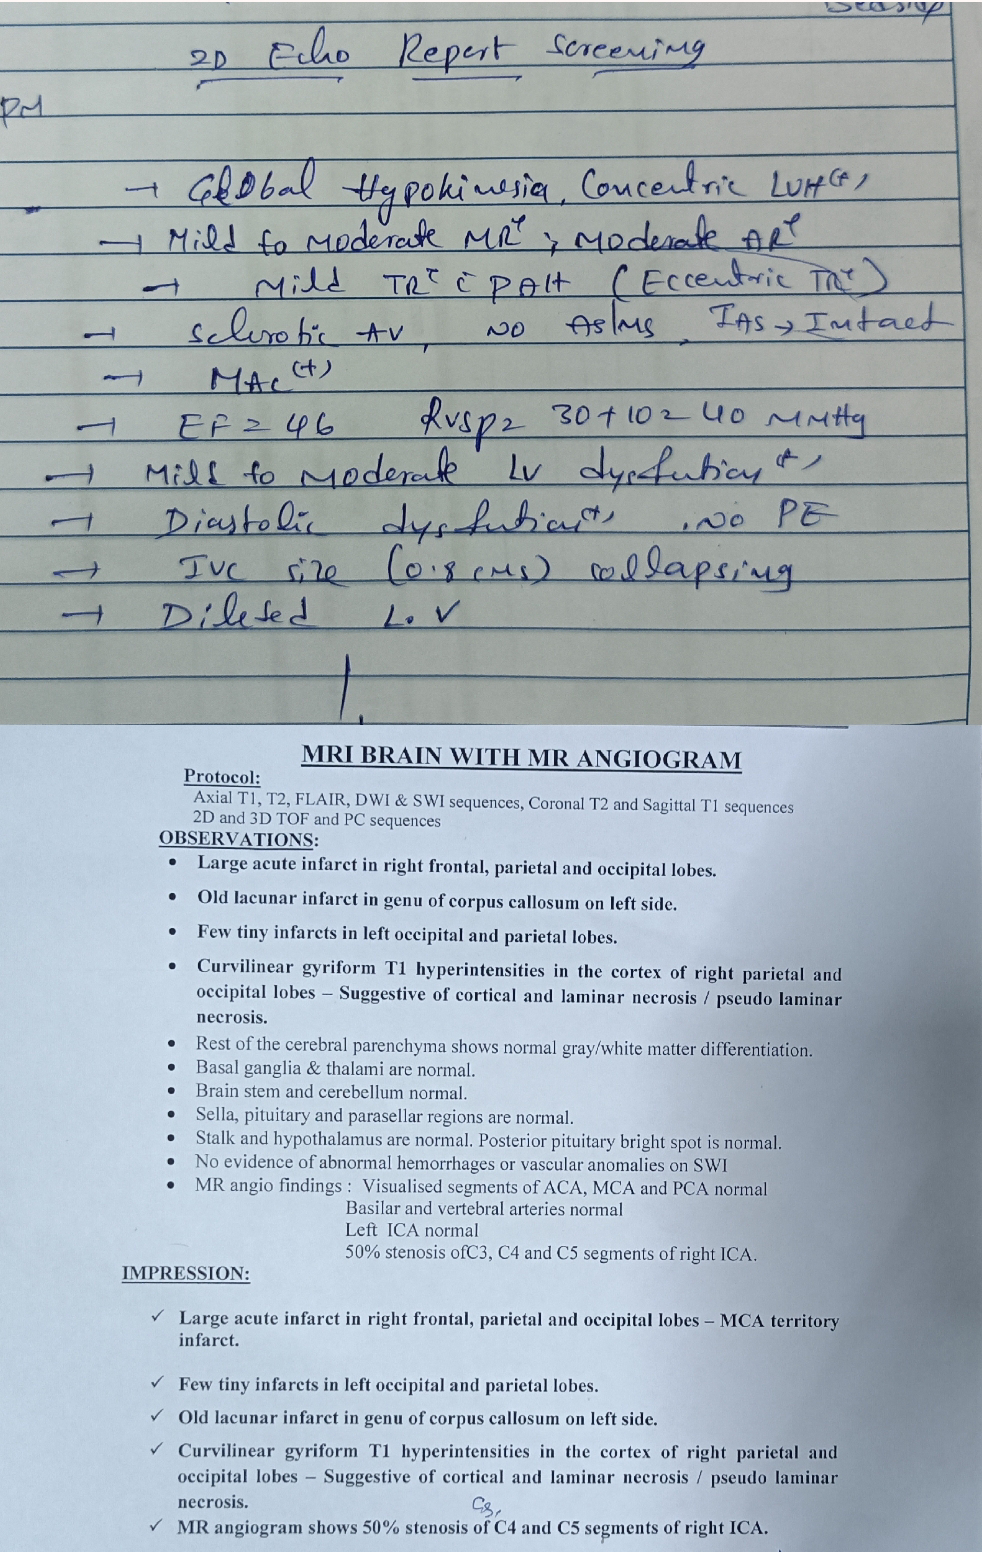 2D Echo Report Screening
PM
→ Global Hypokinesia, Concentric LVH(+),
→ Mild to Moderate MR+, Moderate AR+
→ Mild TR+ c̄ PAH (Eccentric TR+)
→ Sclerotic AV, NO AS/MS, IAS → Intact
→ MAC(+)
→ EF = 46 RVSP = 30+10 = 40 MMHg
→ Mild to Moderate LV dysfution+,
→ Diastolic dysfution(+), NO PE
→ IVC size (0.8 cms) collapsing
→ Dileted L.V
MRI BRAIN WITH MR ANGIOGRAM
Protocol:
Axial T1, T2, FLAIR, DWI & SWI sequences, Coronal T2 and Sagittal T1 sequences
2D and 3D TOF and PC sequences
OBSERVATIONS:
• Large acute infarct in right frontal, parietal and occipital lobes.
• Old lacunar infarct in genu of corpus callosum on left side.
• Few tiny infarcts in left occipital and parietal lobes.
• Curvilinear gyriform T1 hyperintensities in the cortex of right parietal and
occipital lobes – Suggestive of cortical and laminar necrosis / pseudo laminar
necrosis.
• Rest of the cerebral parenchyma shows normal gray/white matter differentiation.
• Basal ganglia & thalami are normal.
• Brain stem and cerebellum normal.
• Sella, pituitary and parasellar regions are normal.
• Stalk and hypothalamus are normal. Posterior pituitary bright spot is normal.
• No evidence of abnormal hemorrhages or vascular anomalies on SWI
• MR angio findings : Visualised segments of ACA, MCA and PCA normal
Basilar and vertebral arteries normal
Left ICA normal
50% stenosis ofC3, C4 and C5 segments of right ICA.
IMPRESSION:
✓ Large acute infarct in right frontal, parietal and occipital lobes – MCA territory
infarct.
✓ Few tiny infarcts in left occipital and parietal lobes.
✓ Old lacunar infarct in genu of corpus callosum on left side.
✓ Curvilinear gyriform T1 hyperintensities in the cortex of right parietal and
occipital lobes – Suggestive of cortical and laminar necrosis / pseudo laminar
necrosis.
C3,
✓ MR angiogram shows 50% stenosis of C4 and C5 segments of right ICA.